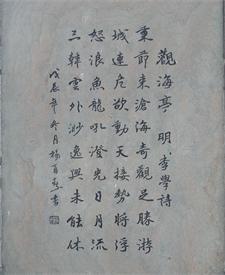 觀海亭 明 李學詩
秉節來滄海奇觀足勝游
城連危欲動天接勢將浮
怒浪魚龍吼澄光日月流
三韓雲外渺逸興未能休
戊辰年冬月楊百書